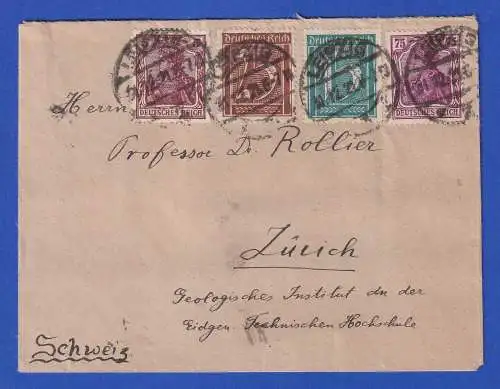 Deutsches Reich
Deutsches Reich
DEUTSCHES REICH
DEUTSCHES REICH
LEIPZIG
LEIPZIG
LEIPZIG
Herrn
Professor Dr. Rollier
Zürich
Geologisches Institut an der
Eidgen. Technischen Hochschule
Schweiz